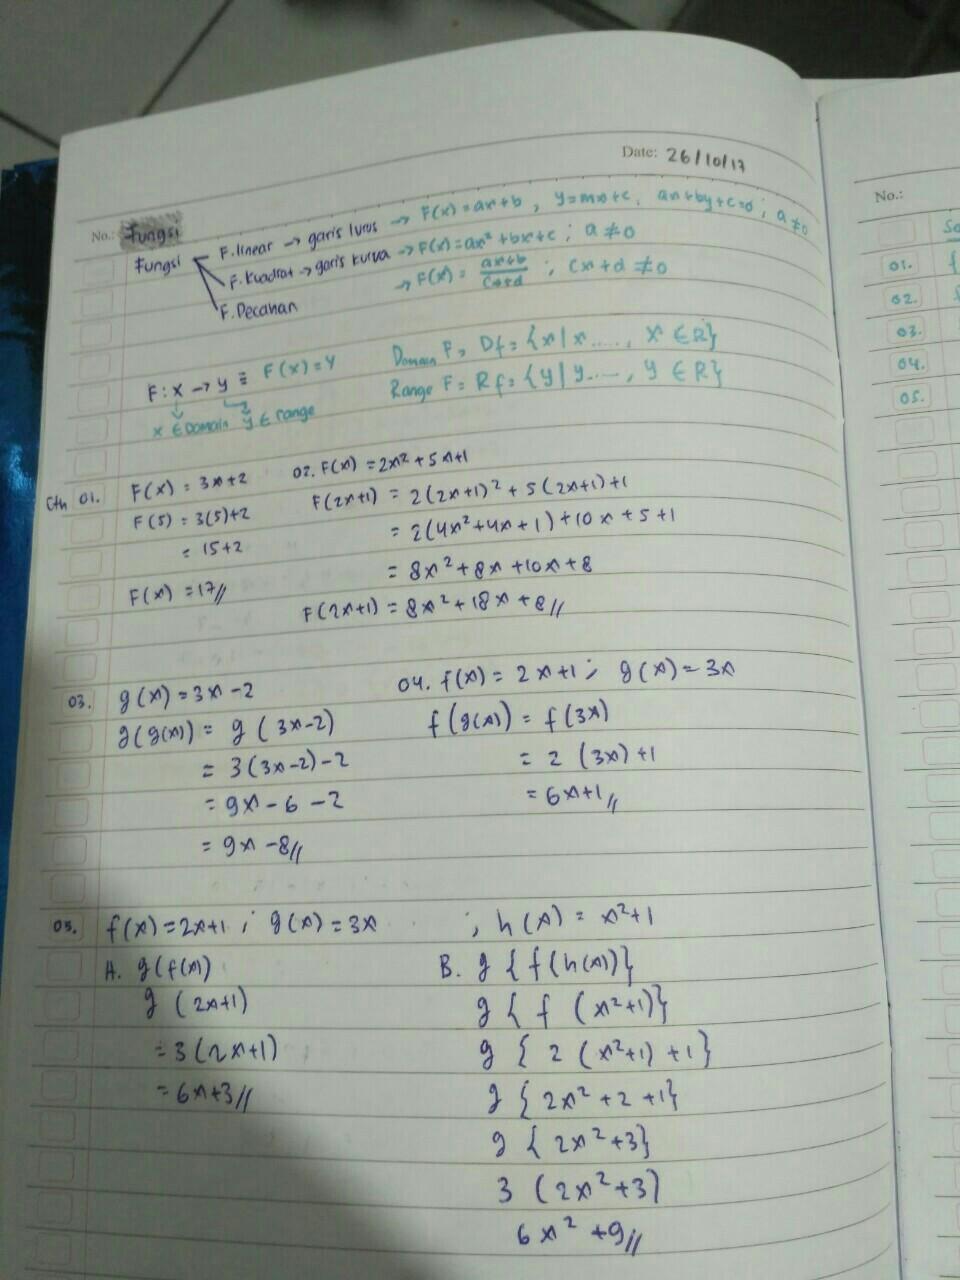 Date: 26/10/17
No.: Fungsi
Fungsi → F.linear → garis lurus → F(x)=ax+b, y=mx+c, ax+by+c=0; a≠0
F.Kuadrat → garis kurva → F(x)=ax²+bx+c; a≠0
F.Pecahan → F(x) = (ax+b)/(cx+d); cx+d ≠0
F: x → y ≡ F(x)=y
x ∈ Domain y ∈ range
Domain F, Df = {x|x....., x ∈ R}
Range F = Rf = {y|y....., y ∈ R}
Cth 01. F(x) = 3x+2
F(5) = 3(5)+2
= 15+2
F(x) = 17//
02. F(x) = 2x²+5x+1
F(2x+1) = 2(2x+1)²+5(2x+1)+1
= 2(4x²+4x+1)+10x+5+1
= 8x²+8x+10x+8
F(2x+1) = 8x²+18x+8//
03. g(x)=3x-2
g(g(x)) = g(3x-2)
= 3(3x-2)-2
= 9x-6-2
= 9x-8//
04. f(x) = 2x+1; g(x) = 3x
f(g(x)) = f(3x)
= 2(3x)+1
= 6x+1//
05. f(x)=2x+1; g(x)=3x ; h(x) = x²+1
A. g(f(x)
g(2x+1)
=3(2x+1)
=6x+3//
B. g{f(h(x))}
g{f(x²+1)}
g{2(x²+1)+1}
g{2x²+2+1}
g{2x²+3}
3(2x²+3)
6x²+9//
No.:
01.
02.
03.
04.
05.